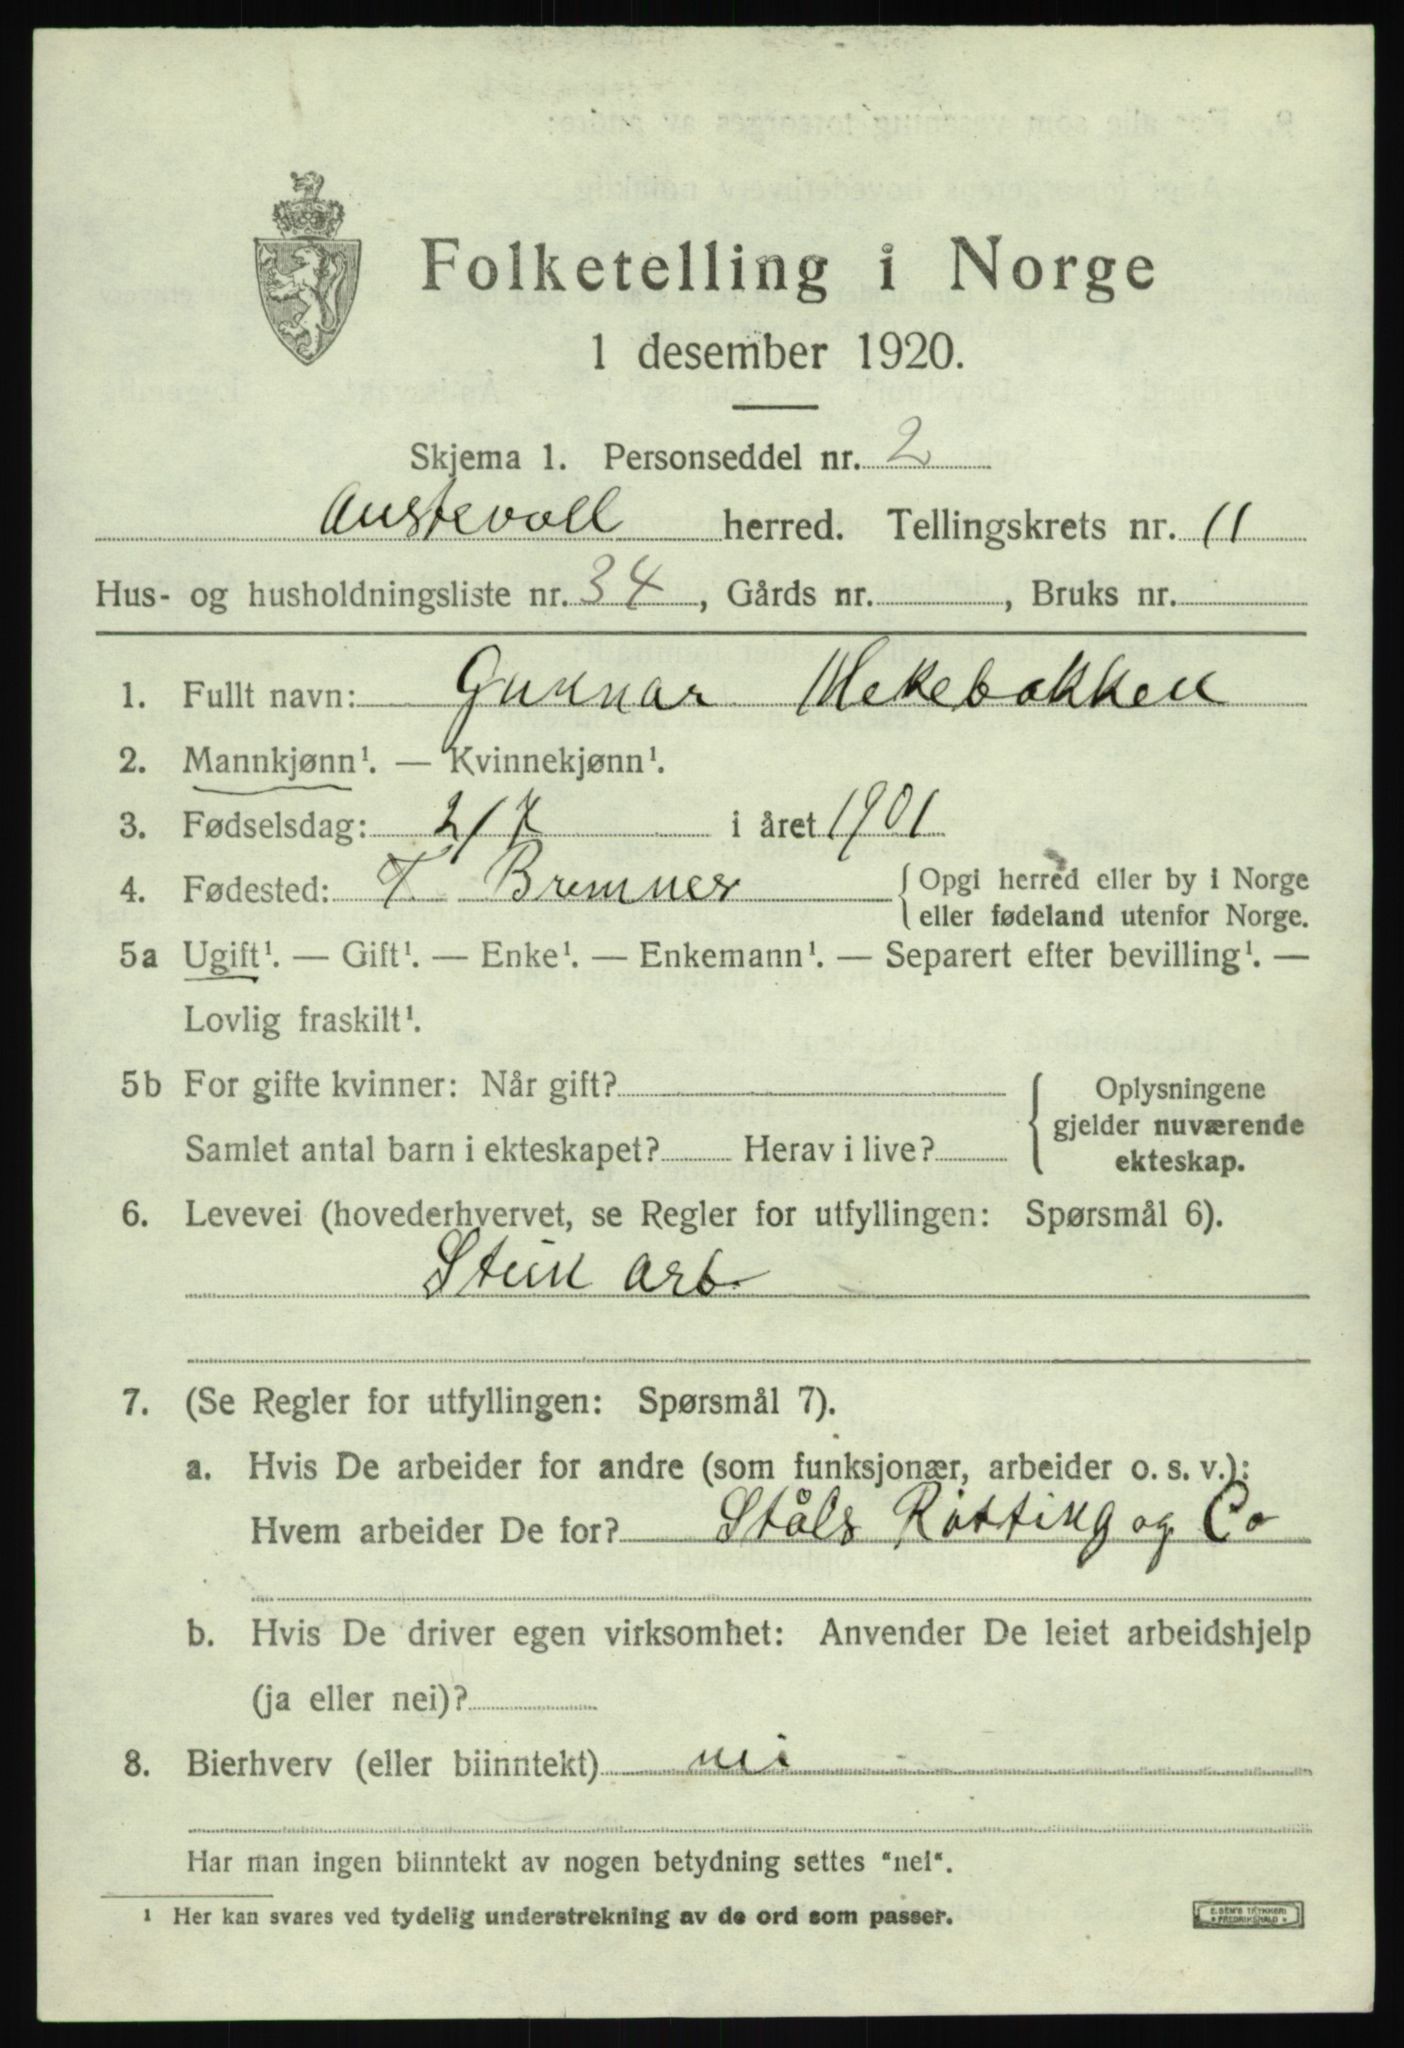 Folketelling i Norge
1 desember 1920.
Skjema 1. Personseddel nr. 2
Austevoll herred. Tellingskrets nr. 11
Hus- og husholdningsliste nr. 34, Gårds nr. , Bruks nr.
1. Fullt navn: Gunnar Mekebakken
2. Mannkjønn¹. — Kvinnekjønn¹.
3. Fødselsdag: 2/7 i året 1901
4. Fødested: T Bremnes
{ Opgi herred eller by i Norge
eller fødeland utenfor Norge.
5a Ugift¹. — Gift¹. — Enke¹. — Enkemann¹. — Separert efter bevilling¹. —
Lovlig fraskilt¹.
5b For gifte kvinner: Når gift?
Samlet antal barn i ekteskapet? Herav i live?
{ Oplysningene
gjelder nuværende
ekteskap.
6. Levevei (hovederhvervet, se Regler for utfyllingen: Spørsmål 6).
Stein arb.
7. (Se Regler for utfyllingen: Spørsmål 7).
a. Hvis De arbeider for andre (som funksjonær, arbeider o. s. v.):
Hvem arbeider De for? Ståls og Co
b. Hvis De driver egen virksomhet: Anvender De leiet arbeidshjelp
(ja eller nei)?
8. Bierhverv (eller biinntekt) nei
Har man ingen biinntekt av nogen betydning settes "nei".
¹ Her kan svares ved tydelig understrekning av de ord som passer.